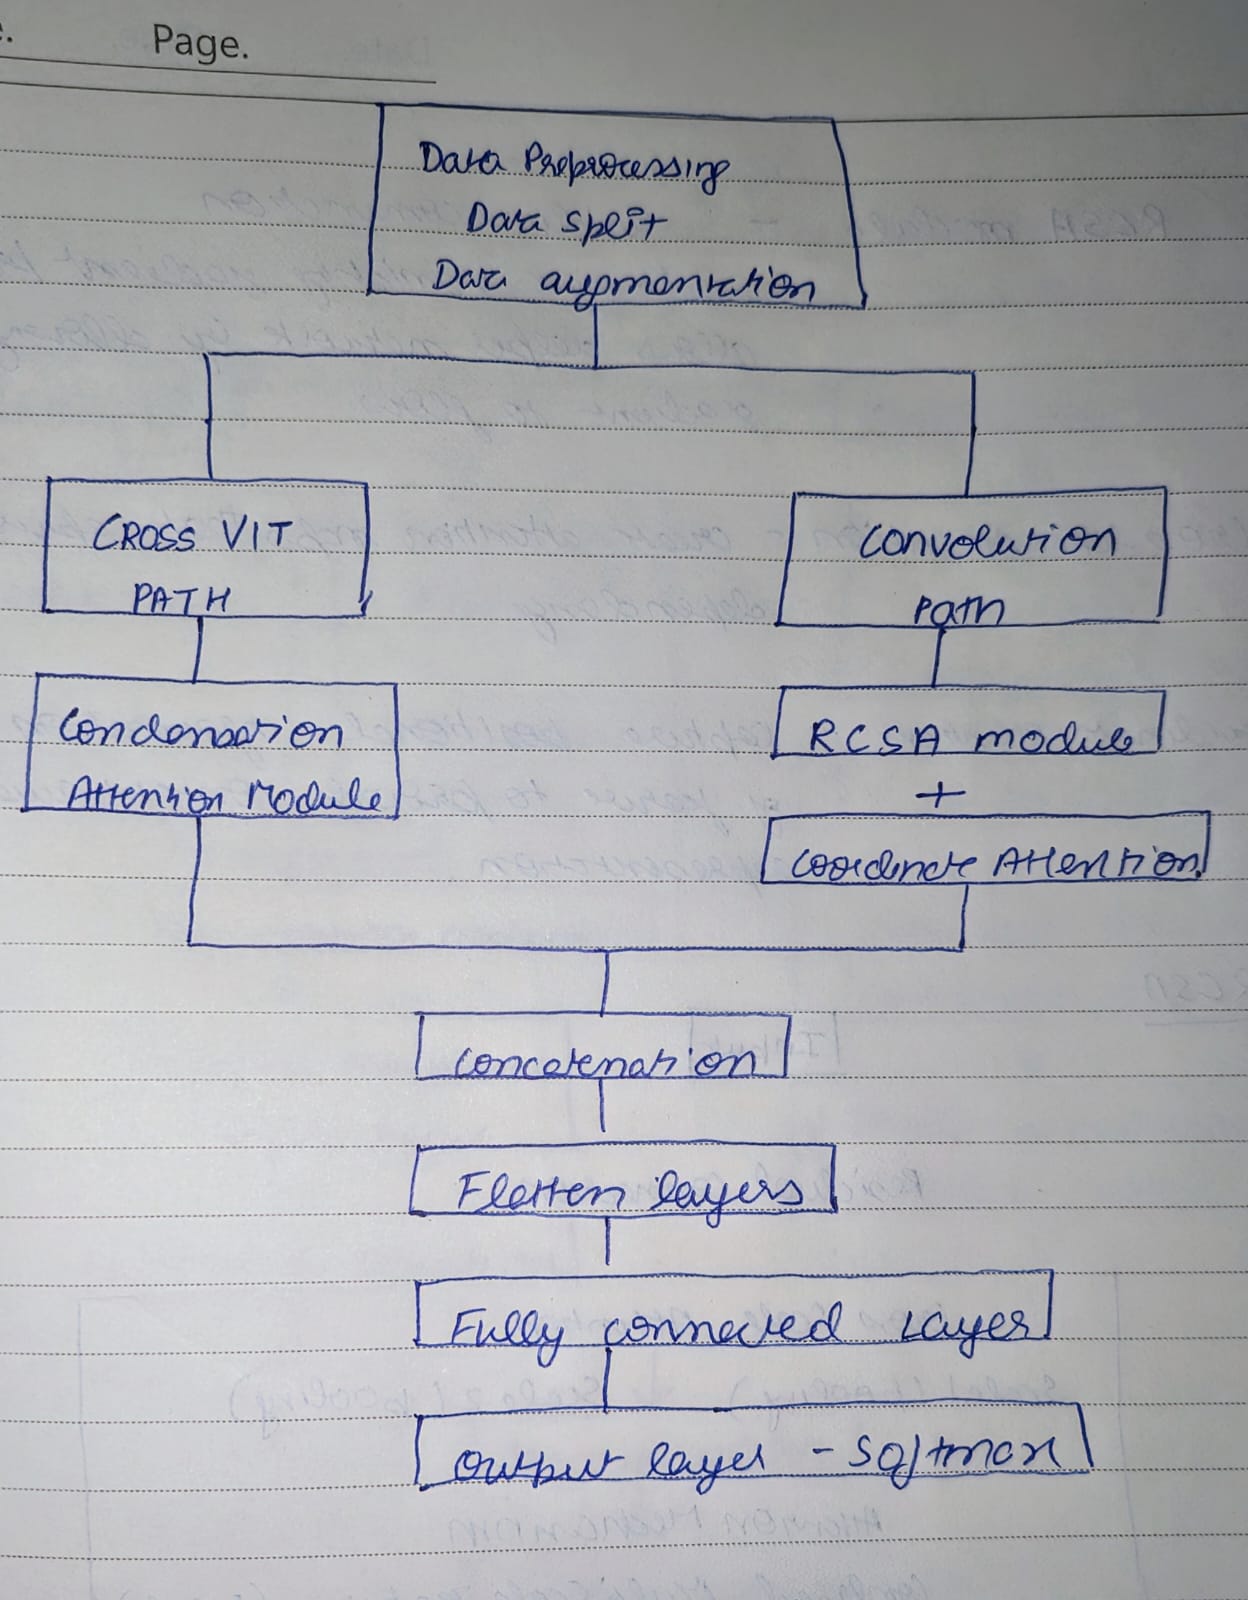 Page.
Data Preprocessing
Data split
Data augmentation
CROSS VIT
PATH
Convolution
Path
Condensation
Attention Module
RCSA module
+
Coordinate Attention
Concatenation
Flatten layers
Fully connected Layer
Output layer - Softmax